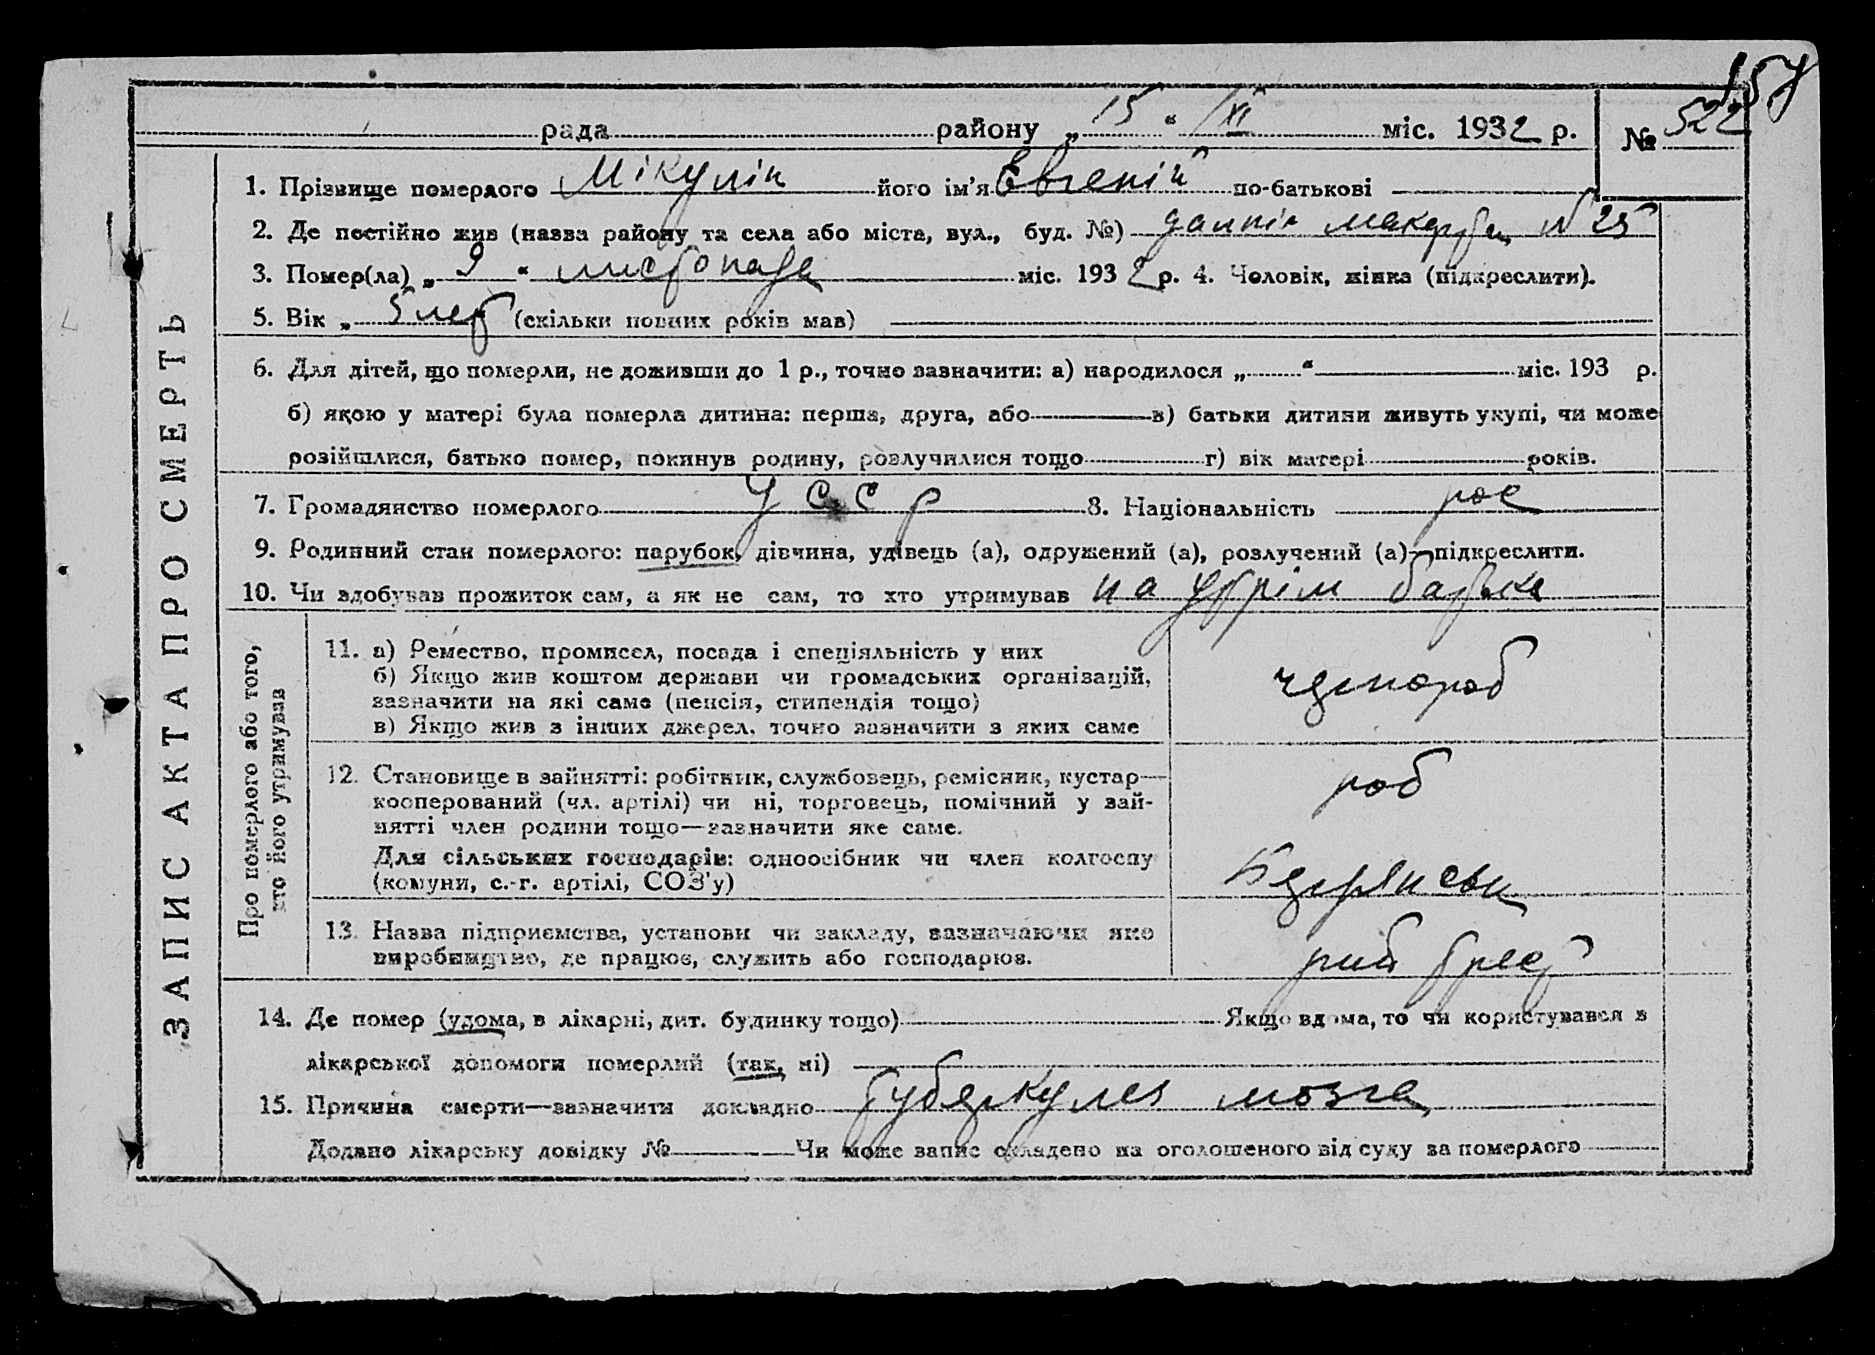 157
рада района „15“ XI міс. 1932 р. № 522
1. Прізвище померлого Мікулін його ім'я Евгеній по-батькові
2. Де постійно жив (назва району та села або міста, вул., буд. №) N 25
3. Помер(ла) „9“ листопада міс. 1932 р. 4. Чоловік, жінка (підкреслити).
5. Вік „ 5 лет (скільки повних років мав)
6. Для дітей, що померли, не доживши до 1 р., точно зазначити: а) народилося „ “ міс. 193 р.
б) якою у матері була померла дитина: перша, друга, або в) батьки дитини живуть укупі, чи може
розійшлися, батько помер, покинув родину, розлучилися тощо г) вік матері років.
7. Громадянство померлого УССР 8. Національність рос
9. Родинний стан померлого: парубок, дівчина, удівець (а), одружений (а), розлучений (а)—підкреслити.
10. Чи здобував прожиток сам, а як не сам, то хто утримував на утрім батька
ЗАПИС АКТА ПРО СМЕРТЬ
Про померлого або того,
хто його утримував
11. а) Ремество, промисел, посада і спеціяльність у них
б) Якщо жив коштом держави чи громадських організацій,
зазначити на які саме (пенсія, стипендія тощо)
в) Якщо жив з інших джерел, точно зазначити з яких саме
чернороб
12. Становище в зайнятті: робітник, службовець, ремісник, кустар—
кооперований (чл. артілі) чи ні, торговець, помічний у зай-
нятті член родини тощо—зазначити яке саме.
Для сільських господарів: одноосібник чи член колгоспу
(комуни, с.-г. артілі, СОЗ'у)
роб
13. Назва підприємства, установи чи закладу, зазначаючи яке
виробництво, де працює, служить або господарює.
риб трест
14. Де помер (удома, в лікарні, дит. будинку тощо) Якщо вдома, то чи користувався з
лікарської допомоги померлий (так, ні)
15. Причина смерти—зазначити докладно туберкулез мозга
Додано лікарську довідку № Чи може запис складено на оголошеного від суду за померлого